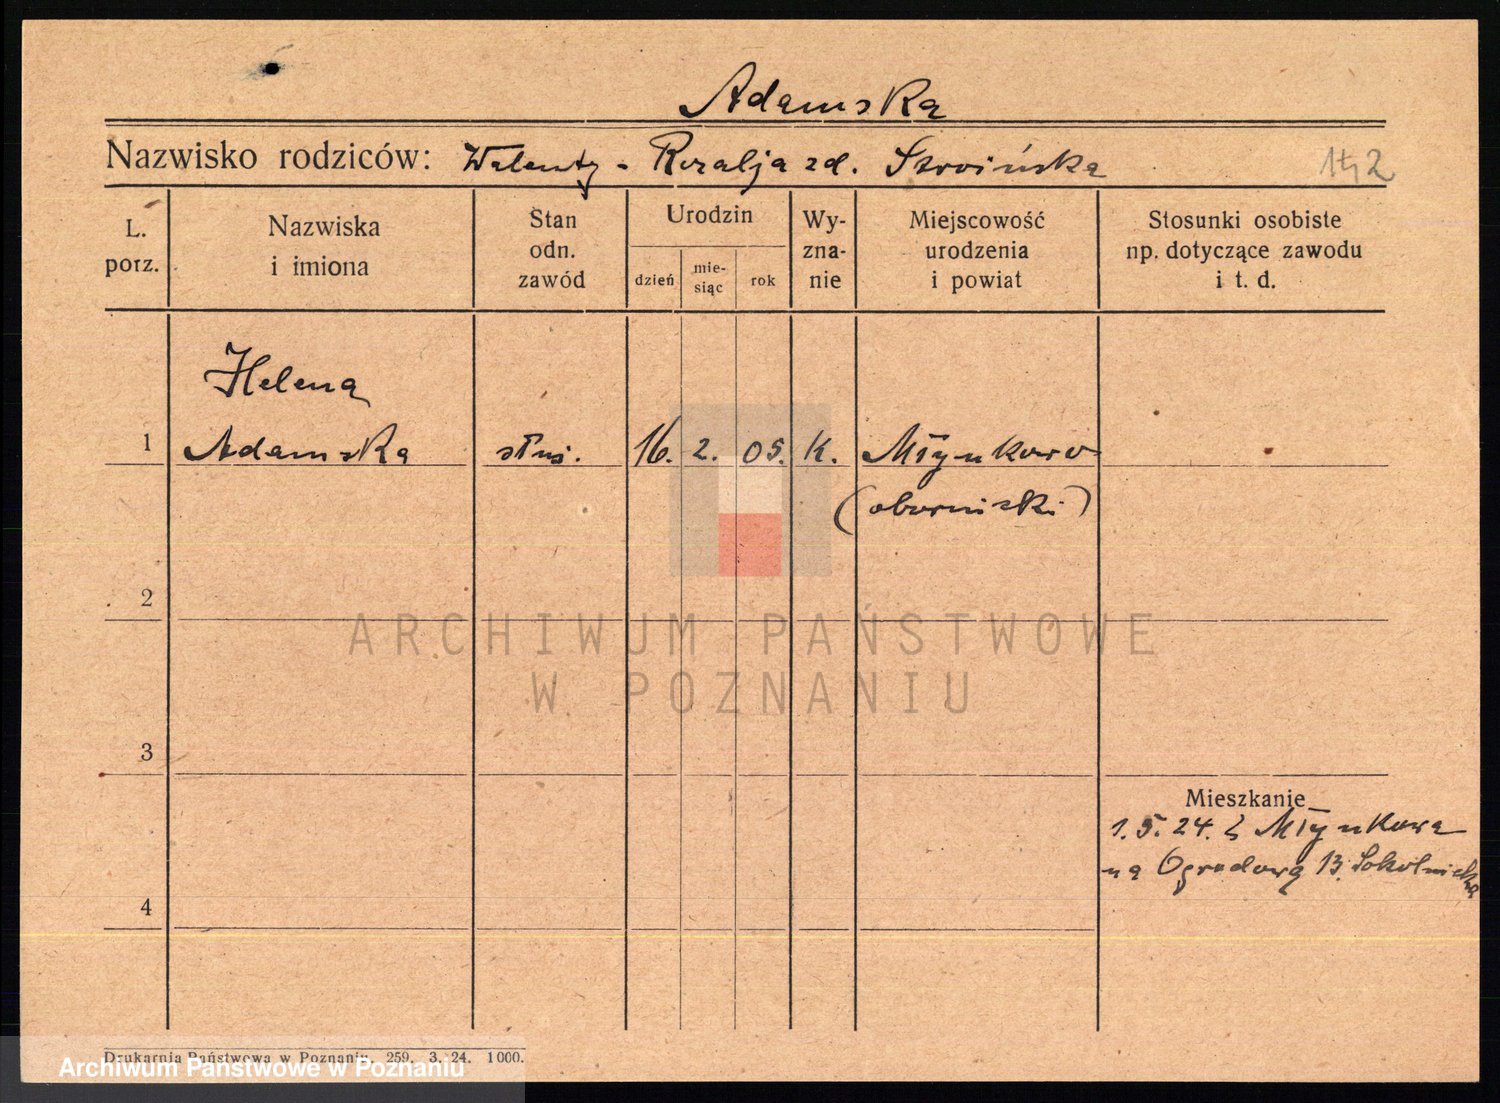 Adamska
Nazwisko rodziców: Walenty - Rozalja zd.
L. porz.
Nazwiska i imiona
Stan odn. zawód
Urodzin
dzień
mie-siąc
rok
Wy-zna-nie
Miejscowość urodzenia i powiat
Stosunki osobiste np. dotyczące zawodu i t. d.
Helena
1 Adamska służ. 16. 2. 05. K. Młynkowo
(obornicki)
2
ARCHIWUM PAŃSTWOWE
W POZNANIU
3
Mieszkanie
1. 5. 24. z Młynkowa
na Ogrodową 13. Sokolnicka
4
Drukarnia Państwowa w Poznaniu. 259. 3. 24. 1000.
Archiwum Państwowe w Poznaniu